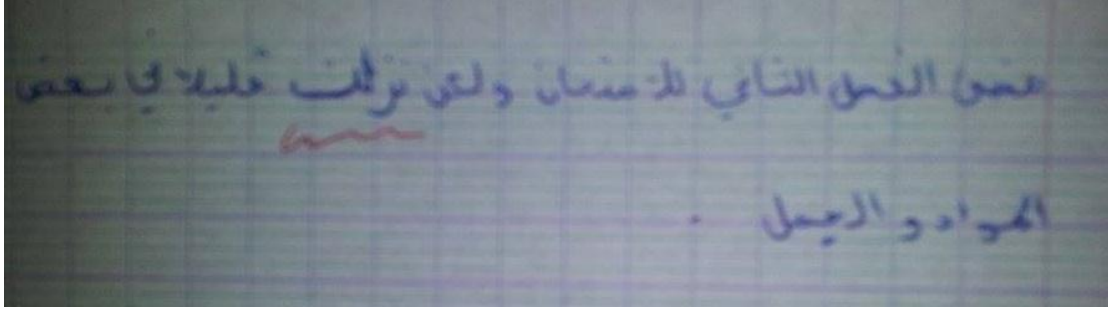 الفصل الثاني للامتحان ولكن نزلت قليلا في بعض
المواد و الجمل .